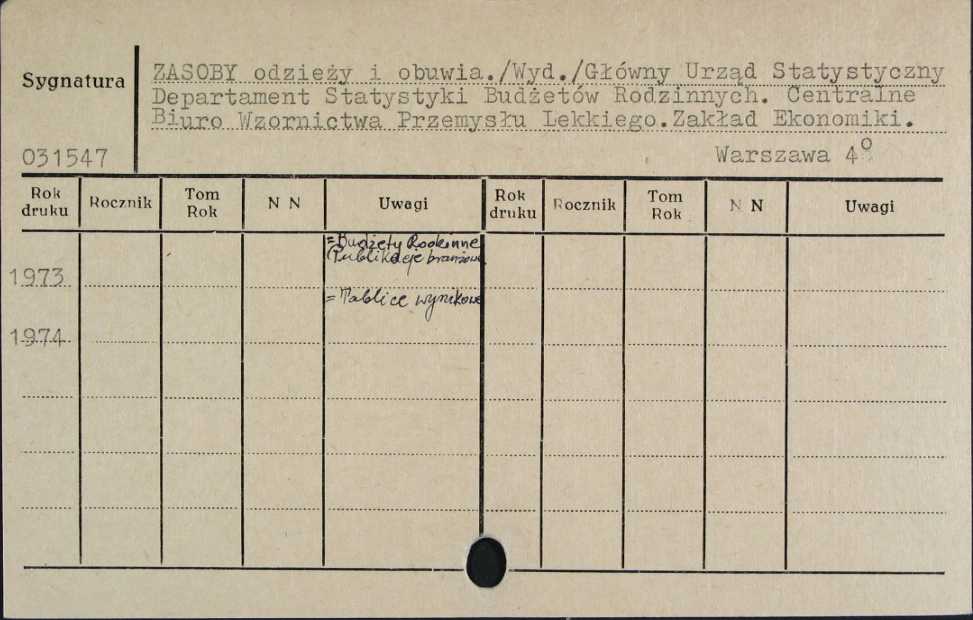 Sygnatura
ZASOBY odzieży i obuwia./Wyd./Główny Urząd Statystyczny
Departament Statystyki Budżetów Rodzinnych. Centralne
Biuro Wzornictwa Przemysłu Lekkiego.Zakład Ekonomiki.
031547
Warszawa 4°
Rok druku Rocznik Tom Rok N N Uwagi Rok druku Rocznik Tom Rok N N Uwagi
=Budżety Rodzinne
(Publikacje branżowe
1973
= Tablice wynikowe
1974